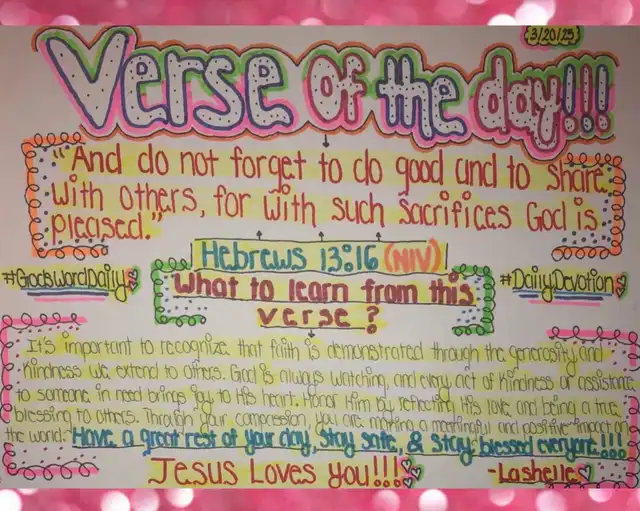 {3/20/25}
Verse of the day!!!
"And do not forget to do good and to share
with others, for with such sacrifices God is
pleased."
Hebrews 13:16 (NIV)
#GodsWordDaily
#DailyDevotion
What to learn from this
verse?
It's important to recognize that faith is demonstrated through the generosity and
kindness we extend to others. God is always watching, and every act of kindness or assistance
to someone in need brings joy to His heart. Honor Him by reflecting His love and being a true
blessing to others. Through your compassion, you are making a meaningful and positive impact on
the world. Have a great rest of your day, stay safe, & stay blessed everyone!!!
Jesus Loves You!!!
-Lashelle